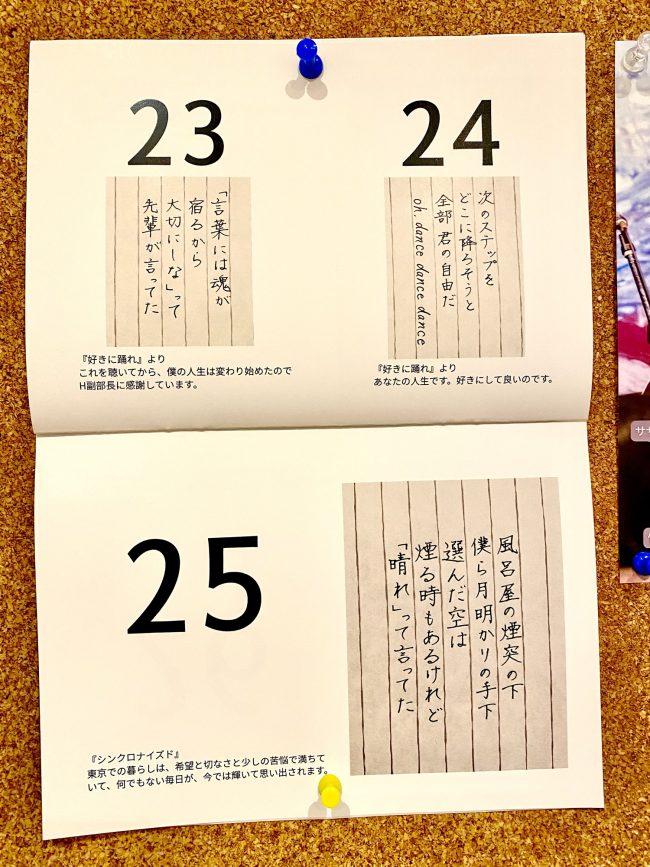 23
「言葉には魂が
宿るから
大切にしな」って
先輩が言ってた
『好きに踊れ』より
これを聴いてから、僕の人生は変わり始めたので
H副部長に感謝しています。
24
次のステップを
どこに降ろそうと
全部君の自由だ
oh, dance dance dance
『好きに踊れ』より
あなたの人生です。好きにして良いのです。
25
風呂屋の煙突の下
僕ら月明かりの手下
選んだ空は
煙る時もあるけれど
「晴れ」って言ってた
『シンクロナイズド』
東京での暮らしは、希望と切なさと少しの苦悩で満ちて
いて、何でもない毎日が、今では輝いて思い出されます。